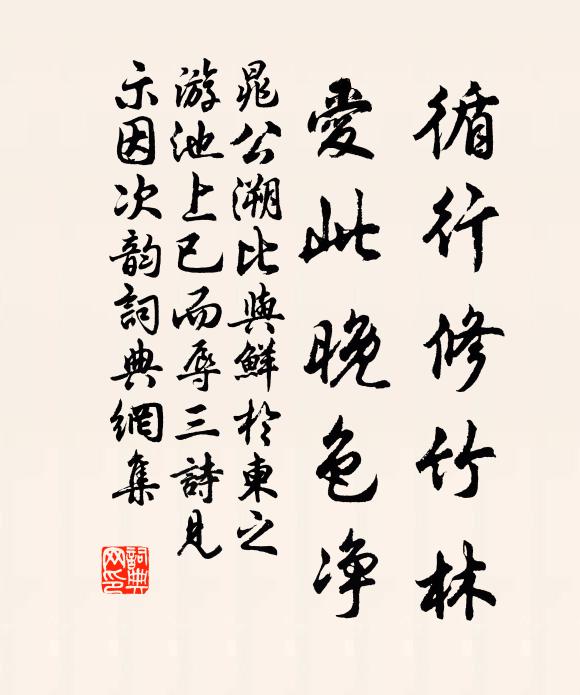 循行修竹林
愛此晚色净
晁公溯比與鮮於東之
游池上已而辱三詩見
示因次韵詞典網集
詞典网印